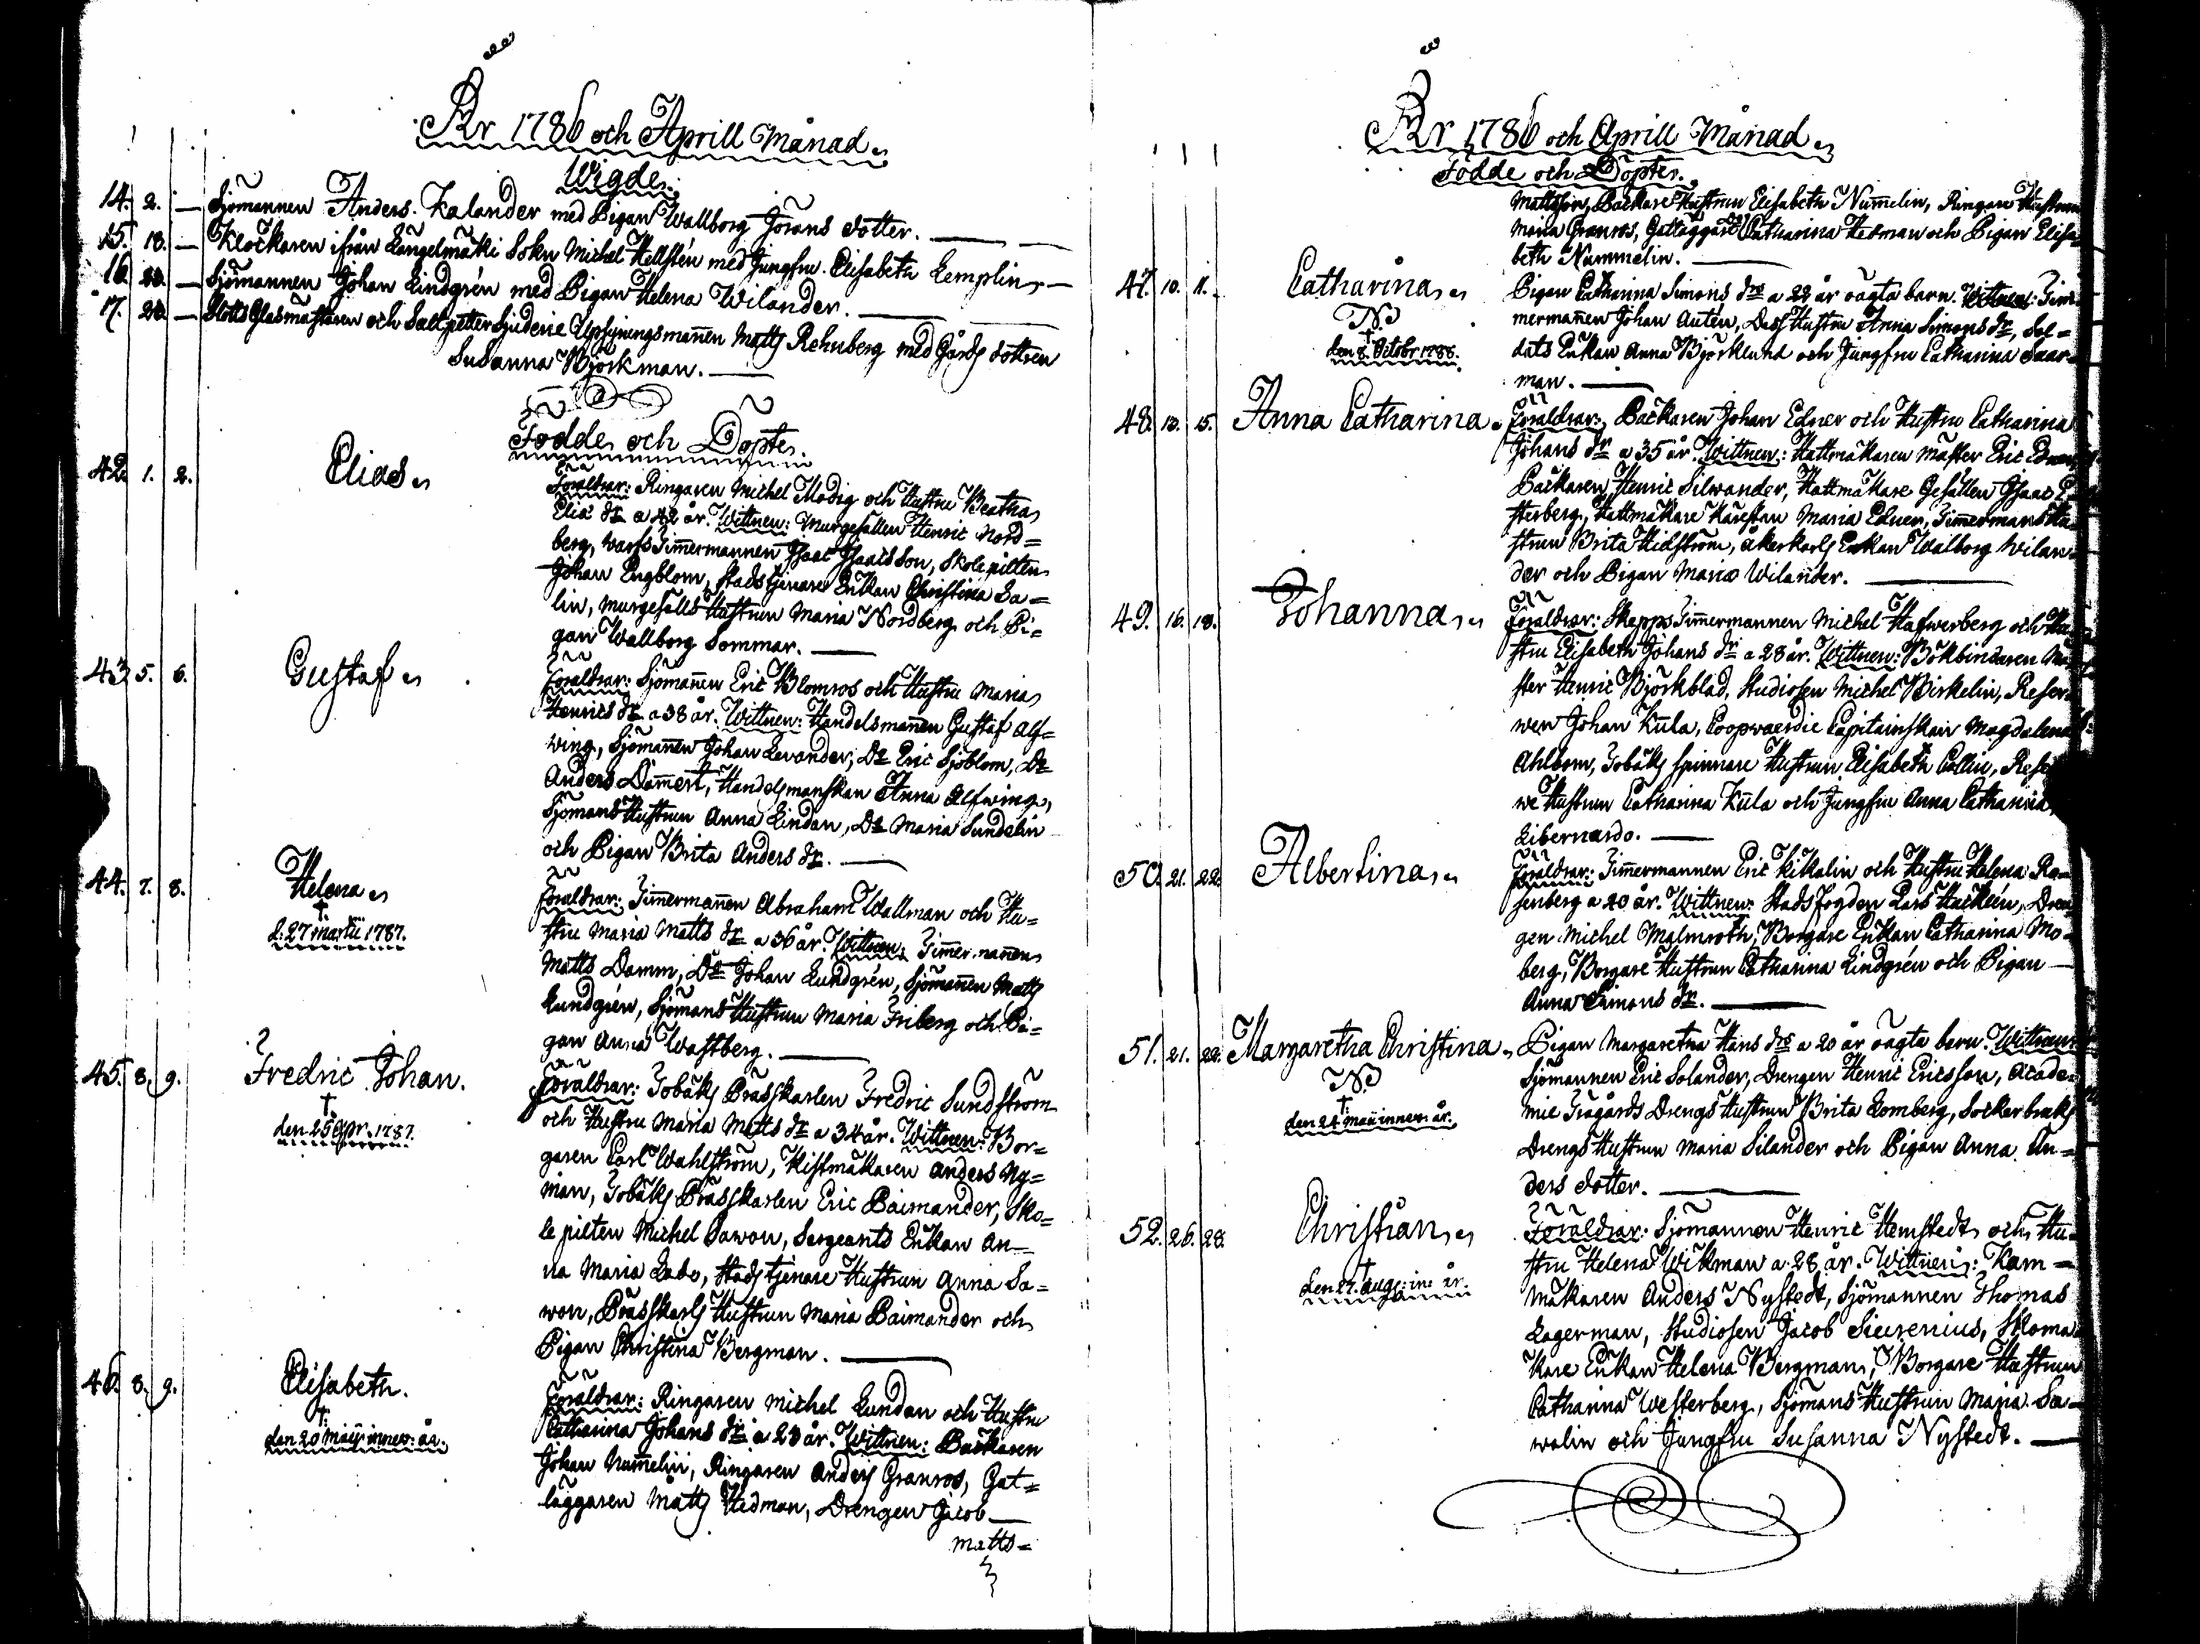 År 1786 och Aprill Månad
Wigde.
14. 2. — Sjömannen Anders Kalander med Pigan Wallborg Jörans dotter. —
15. 18. — Klockaren ifrån Längelmäki Sokn Michel Hellstén med Jungfru Elisabeth Lemplin —
16. — Sjömannen Johan Lindgrén med Pigan Helena Wilander. —
17. — Slotts Glasmästaren och Salpetter Sjuderie Matts Rehnberg med Gårds dottren
Susanna Björkman. —
Födde och Döpte.
42. 1. 2. Elias
Föräldrar: Ringaren Michel Modig och Hustru Beatha
Eliæ dr a 42 år. Wittnen: Murgesällen Henric Nord=
berg, Warfs Timmermannen Isaac Isaacsson, Skolepilten
Johan Engblom, Stadstjenare Enkan Christina Sa=
lin, Murgesälls Hustrun Maria Nordberg och Pi=
gan Wallborg Sommar. —
43. 5. 6. Gustaf
Föräldrar: Sjömannen Eric Blomros och Hustru Maria
Henrics dr a 38 år. Wittnen: Handelsmannen Gustaf Alf=
wing, Sjömannen Johan Levander, Do Eric Sjöblom, Do
Anders Dammert, Handelsmanskan Anna Alfwing,
Sjömans Hustrun Anna Lindan, Do Maria Sundelin
och Pigan Brita Anders dr. —
44. 7. 8. Helena
†
d. 27 Martii 1787.
Föräldrar: Timmermannen Abraham Wallman och Hu=
stru Maria Matts dr a 36 år. Wittnen: Timmermannen
Matts Damm, Do Johan Lundgrén, Sjömannen Matts
Lundgrén, Sjömans Hustrun Maria Friberg och Pi=
gan Anna Wastberg. —
45. 8. 9. Fredric Johan.
†
den 25 Apr. 1787.
Föräldrar: Tobaks Prässkarlen Fredric Sundström
och Hustru Maria Matts dr a 34 år. Wittnen: Bor=
garen Carl Wahlström, Kistmakaren Anders Ny=
man, Tobaks Prässkarlen Eric Baimander, Sko=
le pilten Michel Sawon, Sergeants Enkan An=
na Maria Labo, Stadstjenare Hustrun Anna Sa=
won, Prässkarls Hustrun Maria Baimander och
Pigan Christina Bergman. —
46. 8. 9. Elisabeth.
†
den 20 Maij innev. år.
Föräldrar: Ringaren Michel Lundan och Hustru
Catharina Johans dr a 28 år. Wittnen: Backaren
Johan Nummelin, Ringaren Anders Granros, Gat=
läggaren Matts Hedman, Drengen Jacob
Matts=
År 1786 och Aprill Månad
Födde och Döpte.
Mattsson, Backare Hustrun Elisabeth Nummelin, Ringare Hustrun
Maria Granros, Catharina Hedman och Pigan Elisa=
beth Nummelin. —
47. 10. 11. Catharina
N.
†
den 8 Octobr 1786.
Pigan Catharina Simons drs a 22 år oägta barn. Wittnen: Tim=
mermannen Johan Autén, Dess Hustru Anna Simons dr, Sol=
dats Enkan Anna Björklund och Jungfru Catharina Saar=
man. —
48. 13. 15. Anna Catharina
Föräldrar: Backaren Johan Edner och Hustru Catharina
Johans dr a 35 år. Wittnen: Hattmakaren Mäster Eric Edner
Backaren Henric Silwander, Hattmakare Gesällen Isaac
sterberg, Hattmakare Käreskan Maria Edner, Timmermans Hu=
strun Brita Hidström, Åkerkarls Enkan Walborg Wilan=
der och Pigan Maria Wilander. —
49. 16. 18. Johanna
Föräldrar: Skepps Timmermannen Michel Hafwerberg och Hu=
stru Elisabeth Johans dr a 28 år. Wittnen: Bokbindaren Mä=
ster Henric Björkblad, Studiosen Michel Birkelin, Reser=
wen Johan Kula, Coopvaerdie Capitainskan Magdalena
Ahlbom, Tobaks spinnare Hustrun Elisabeth Collin, Reser
we Hustrun Catharina Kula och Jungfru Anna Catharina
Libernardo. —
50. 21. 22. Albertina
Föräldrar: Timmermannen Eric Kikalin och Hustru Helena Ro=
senberg a 40 år. Wittnen: Stadsfogden Lars Hacklin, Dren=
gen Michel Malmroth, Borgare Enkan Catharina Mo=
berg, Borgare Hustrun Catharina Lindgrén och Pigan —
Anna Simons dr. —
51. 21. 22. Margaretha Christina
N.
†
den 24 Maii innev. år.
Pigan Margaretha Hans drs a 20 år oägta barn. Wittnen:
Sjömannen Eric Solander, Drengen Henric Ericsson, Acade=
mie Trägårds Drengs Hustrun Brita Lomberg, Sockerbruks
Drengs Hustrun Maria Silander och Pigan Anna An=
ders dotter. —
52. 26. 28. Christian
†
den 27. Aug. in: år.
Föräldrar: Sjömannen Henric Hemstedt och Hu=
stru Helena Wikman a 28 år. Wittnen: Kam=
makaren Anders Nystedt, Sjömannen Thomas
Lagerman, Studiosen Jacob Siurenius, Skoma
kare Enkan Helena Bergman, Borgare Hustrun
Catharina Westerberg, Sjömans Hustrun Maria Sa=
walin och Jungfru Susanna Nystedt. —